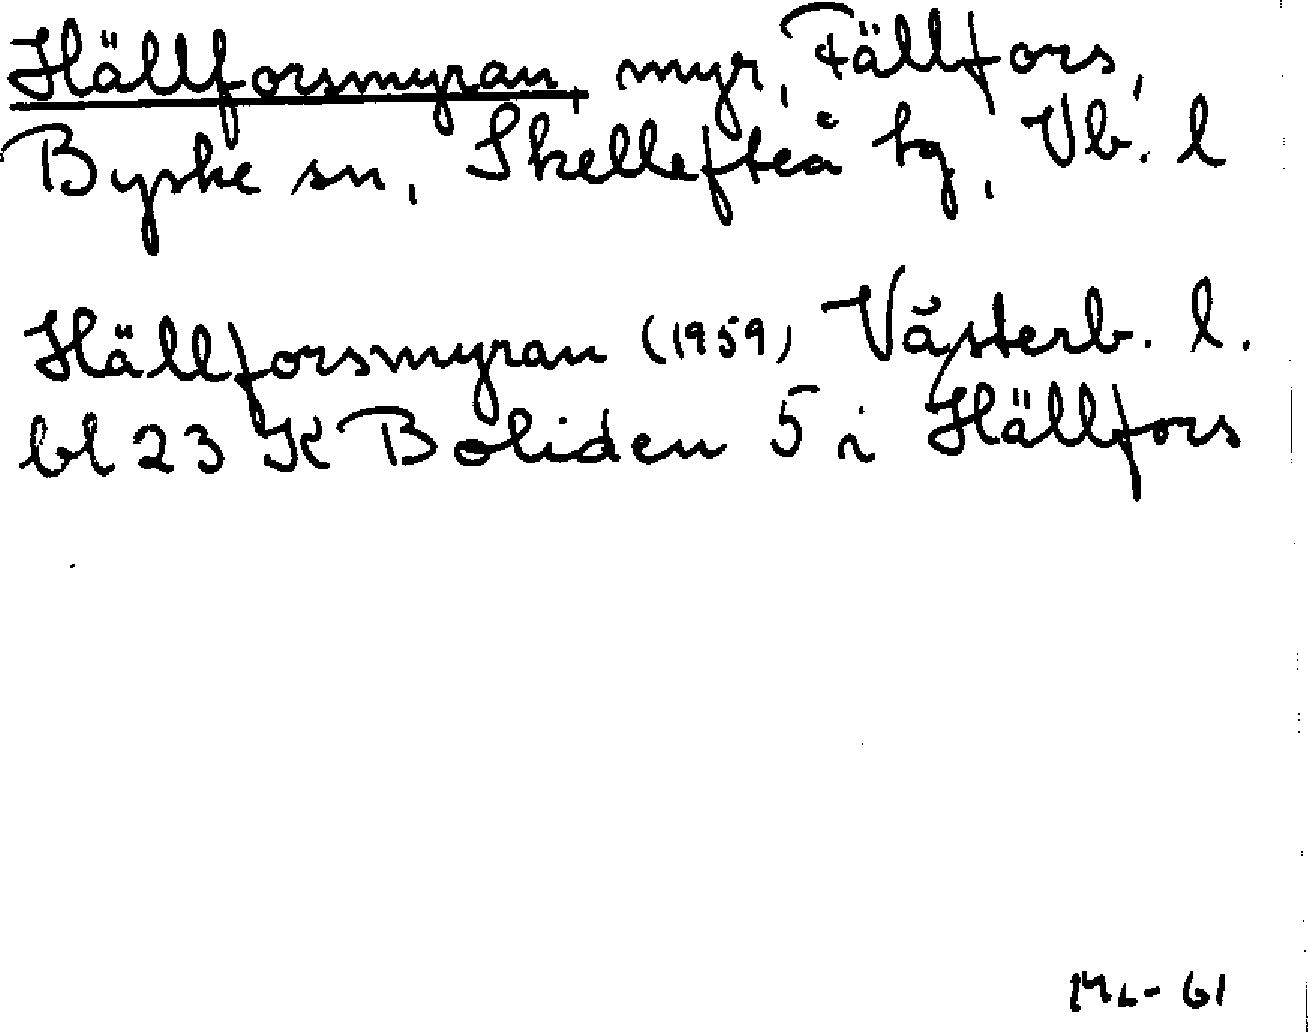 Hällforsmyran, myr, Fällfors,
Byske sn, Skellefteå tg, Vb. l
Hällforsmyran (1959) Västerb. l.
bl 23 K Boliden 5 i Hällfors
ML- 61